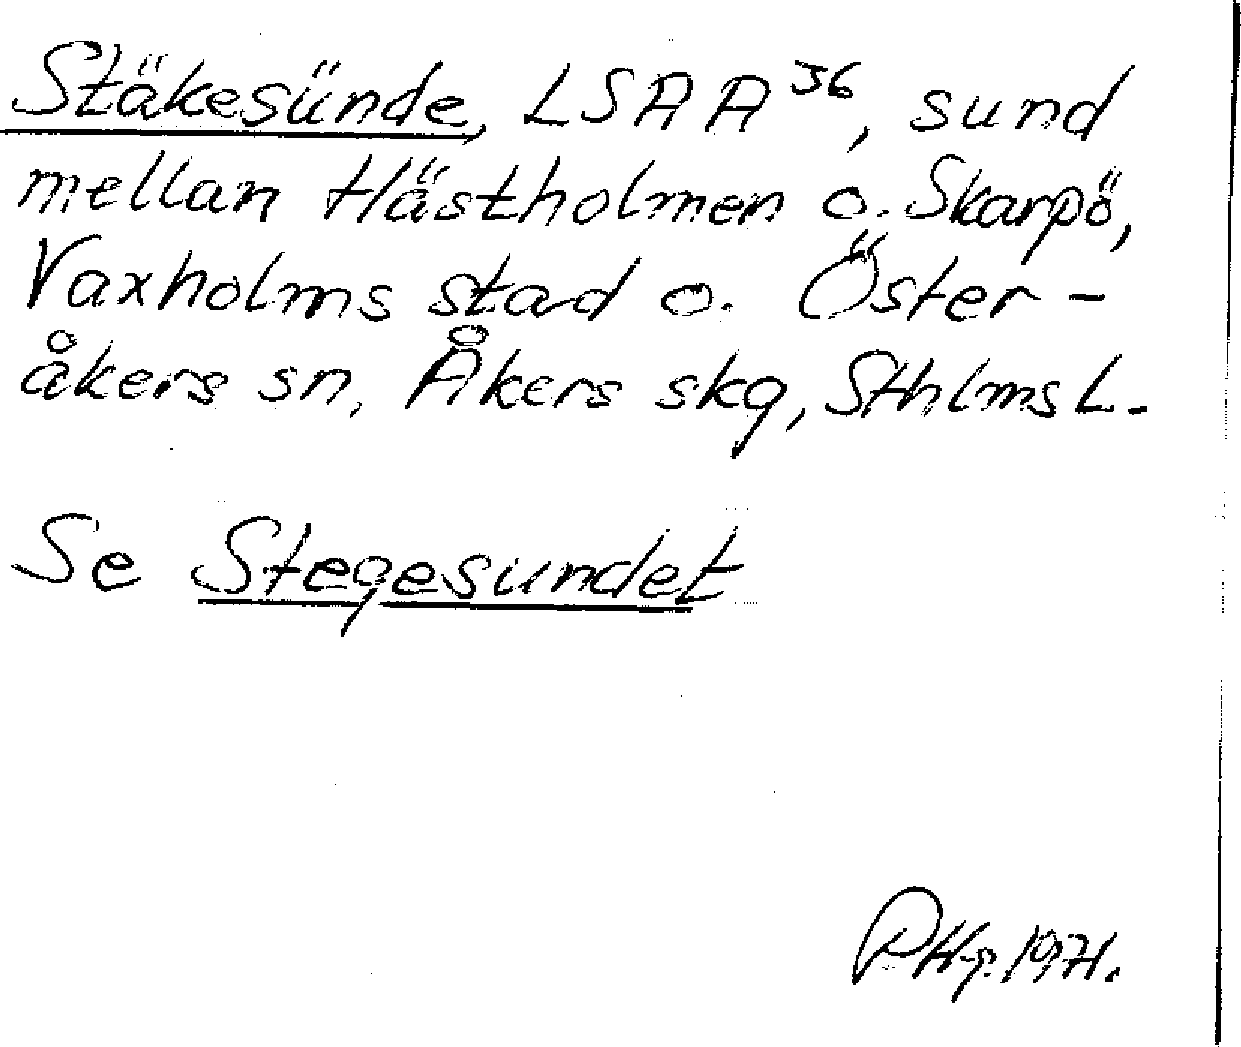 Stäkesünde, LSAA36, sund
mellan Hästholmen o. Skarpö,
Vaxholms stad o. Öster-
åkers sn, Åkers skg, Sthlms L.
Se Stegesundet
PHg. 1971.